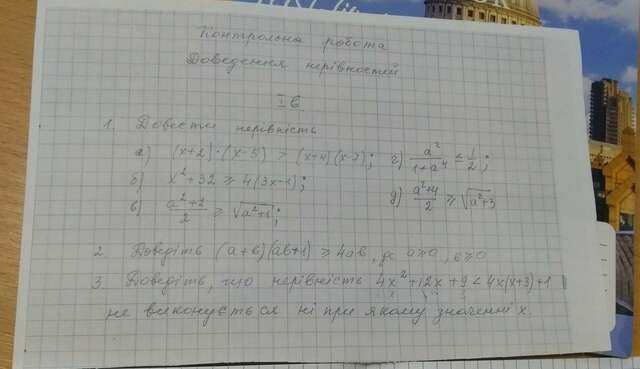 Контрольна робота
Доведення нерівностей
I в
1. Довести нерівність
а) (x+2)·(x-5) > (x+4)(x-7); г) a²/(1+a⁴) ≤ 1/2;
б) x²+32 ≥ 4(3x-1); д) (a²+4)/2 ≥ √(a²+3)
в) (a²+2)/2 ≥ √(a²+1);
2. Доведіть (a+b)(ab+1) ≥ 4ab, де a≥0, b≥0
3. Доведіть, що нерівність 4x²+12x+9 < 4x(x+3)+1
не виконується ні при якому значенні x.